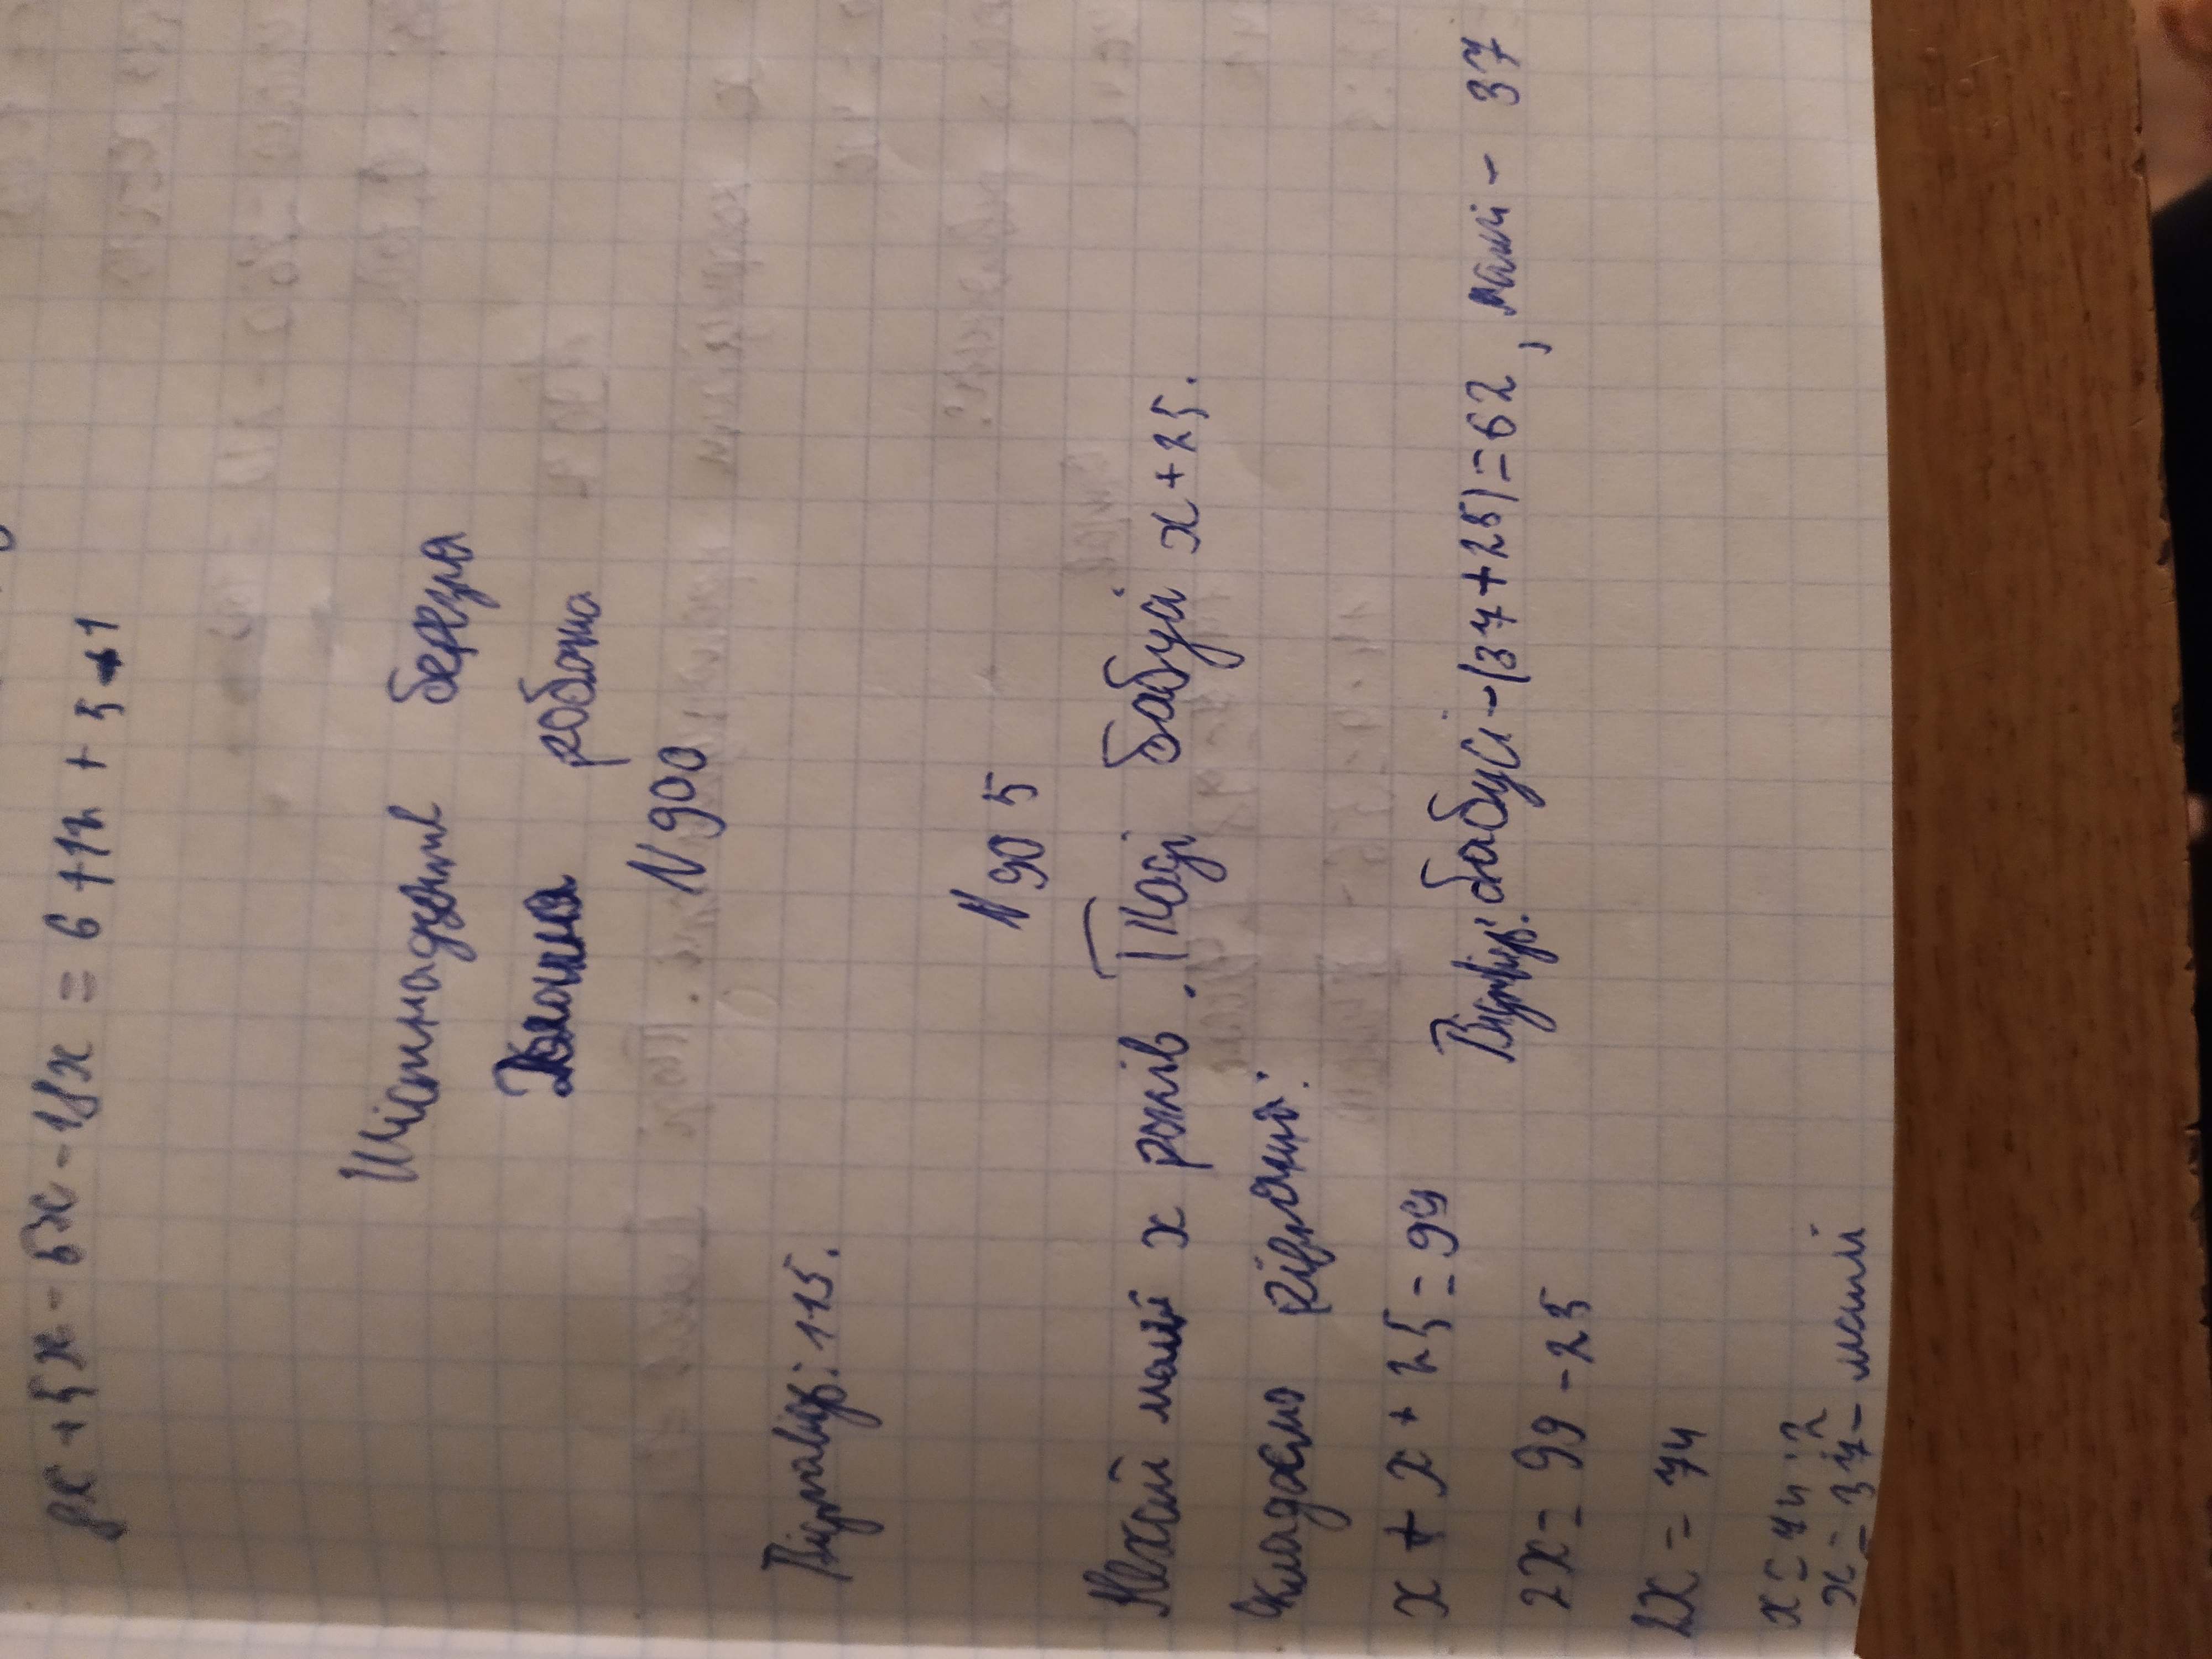 8x + 5x - 5x - 18x = 6 + 12 + 5 + 1
Шістнадцяте березня
Домашня робота
N 900
Відповідь: 115.
N 905
Нехай мамі x років. Тоді бабусі x + 25.
Складаємо рівняння:
x + x + 25 = 99
2x = 99 - 25
Відповідь: бабусі - (37 + 25) = 62, мамі - 37
2x = 74
x = 74 : 2
x = 37 - мамі